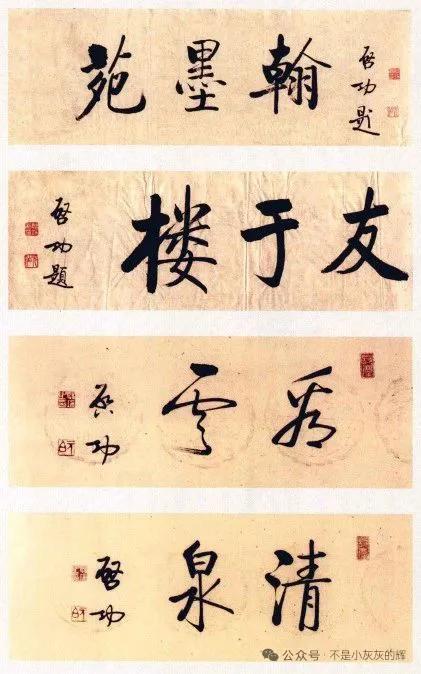 启功题
翰墨苑
友于楼
启功题
看云
启功
清泉
启功
公众号 · 不是小灰灰的辉